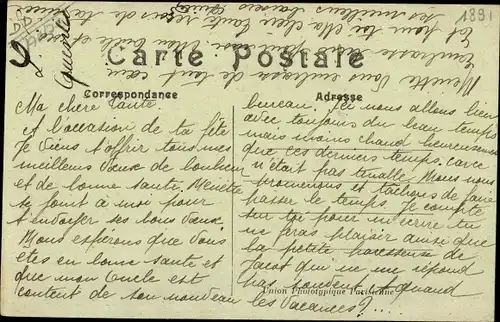 Carte Postale
Correspondance
Adresse
Ma chère Tante.
A l'occasion de ta fête
je viens t'offrir tous mes
meilleurs vœux de bonheur
et de bonne santé. Ninette
se joint à moi pour
t'endosser ses bons vœux.
Nous espérons que vous
êtes en bonne santé et
que mon Oncle est
content de son nouveau
bureau. Ici nous allons bien
avec toujours du beau temps
mais moins chaud heureusement
que ces derniers temps. car ce
n'était pas tenable. Nous nous
promenons et tachons de faire
passer le temps. Je compte
sur toi pour m'écrire tu
me feras plaisir ainsi que
la petite de
Jacot qui ne me répond
pas souvent. A quand
les vacances? ....
Ninette vous embrasse de tout cœur
et
Et pour toi Ma chère tante reçois de
tes meilleurs baisers
Union Phototypique Parisienne
1891